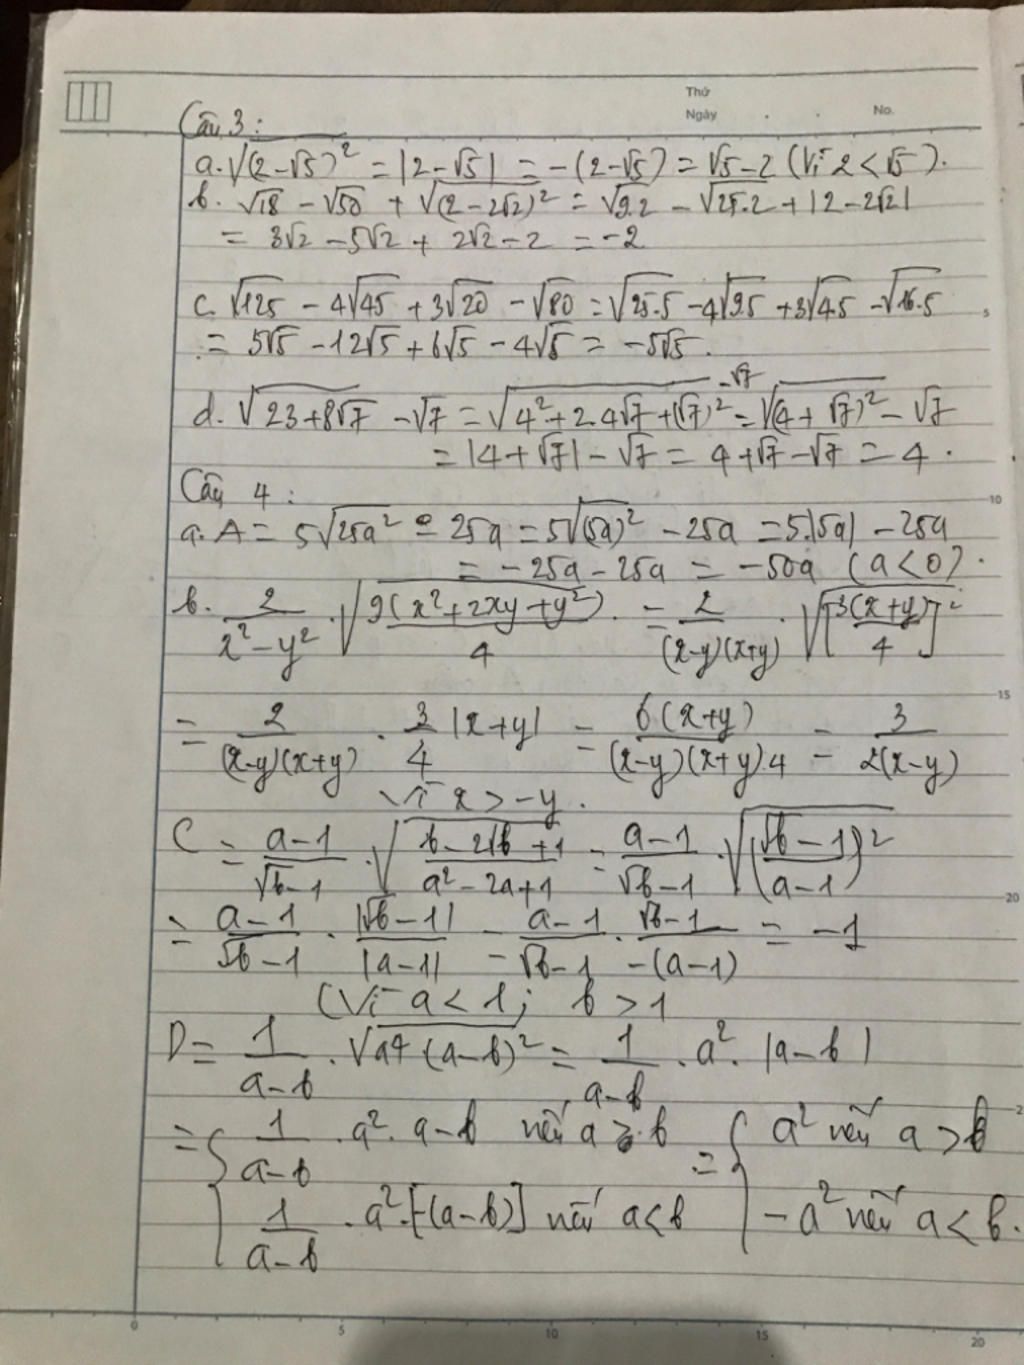 Thứ
Ngày . . No.
Câu 3:
a. √(2-√5)² = |2-√5| = -(2-√5) = √5-2 (Vì 2<√5).
b. √18 - √50 + √(2-2√2)² = √9.2 - √25.2 + |2-2√2|
= 3√2 - 5√2 + 2√2 - 2 = -2
c. √125 - 4√45 + 3√20 - √80 = √25.5 - 4√9.5 + 3√4.5 - √16.5
= 5√5 - 12√5 + 6√5 - 4√5 = -5√5.
d. √23+8√7 - √7 = √4²+2.4√7+(√7)² -√7 = √(4+√7)² - √7
= |4+√7| - √7 = 4+√7-√7 = 4.
Câu 4:
a. A = 5√25a² - 25a = 5√(5a)² - 25a = 5.|5a| - 25a
= -25a - 25a = -50a (a<0).
b. 2/(x²-y²) . √9(x²+2xy+y²)/4 = 2/(x-y)(x+y) . √[3(x+y)/4]²
= 2/(x-y)(x+y) . 3/4 |x+y| = 6(x+y)/(x-y)(x+y).4 = 3/2(x-y)
Vì x > -y.
C = a-1/√b-1 . √b-2√b+1/a²-2a+1 = a-1/√b-1 . √(√b-1)²/(a-1)
= a-1/√b-1 . |√b-1|/|a-1| = a-1/√b-1 . √b-1/-(a-1) = -1
(Vì a<1; b>1
D = 1/a-b . √a4(a-b)² = 1/a-b . a². |a-b|
= { 1/a-b . a². a-b nếu a ≥ b = { a² nếu a > b
1/a-b . a².[-(a-b)] nếu a<b - a² nếu a < b.
5
10
15
20
0 5 10 15 20